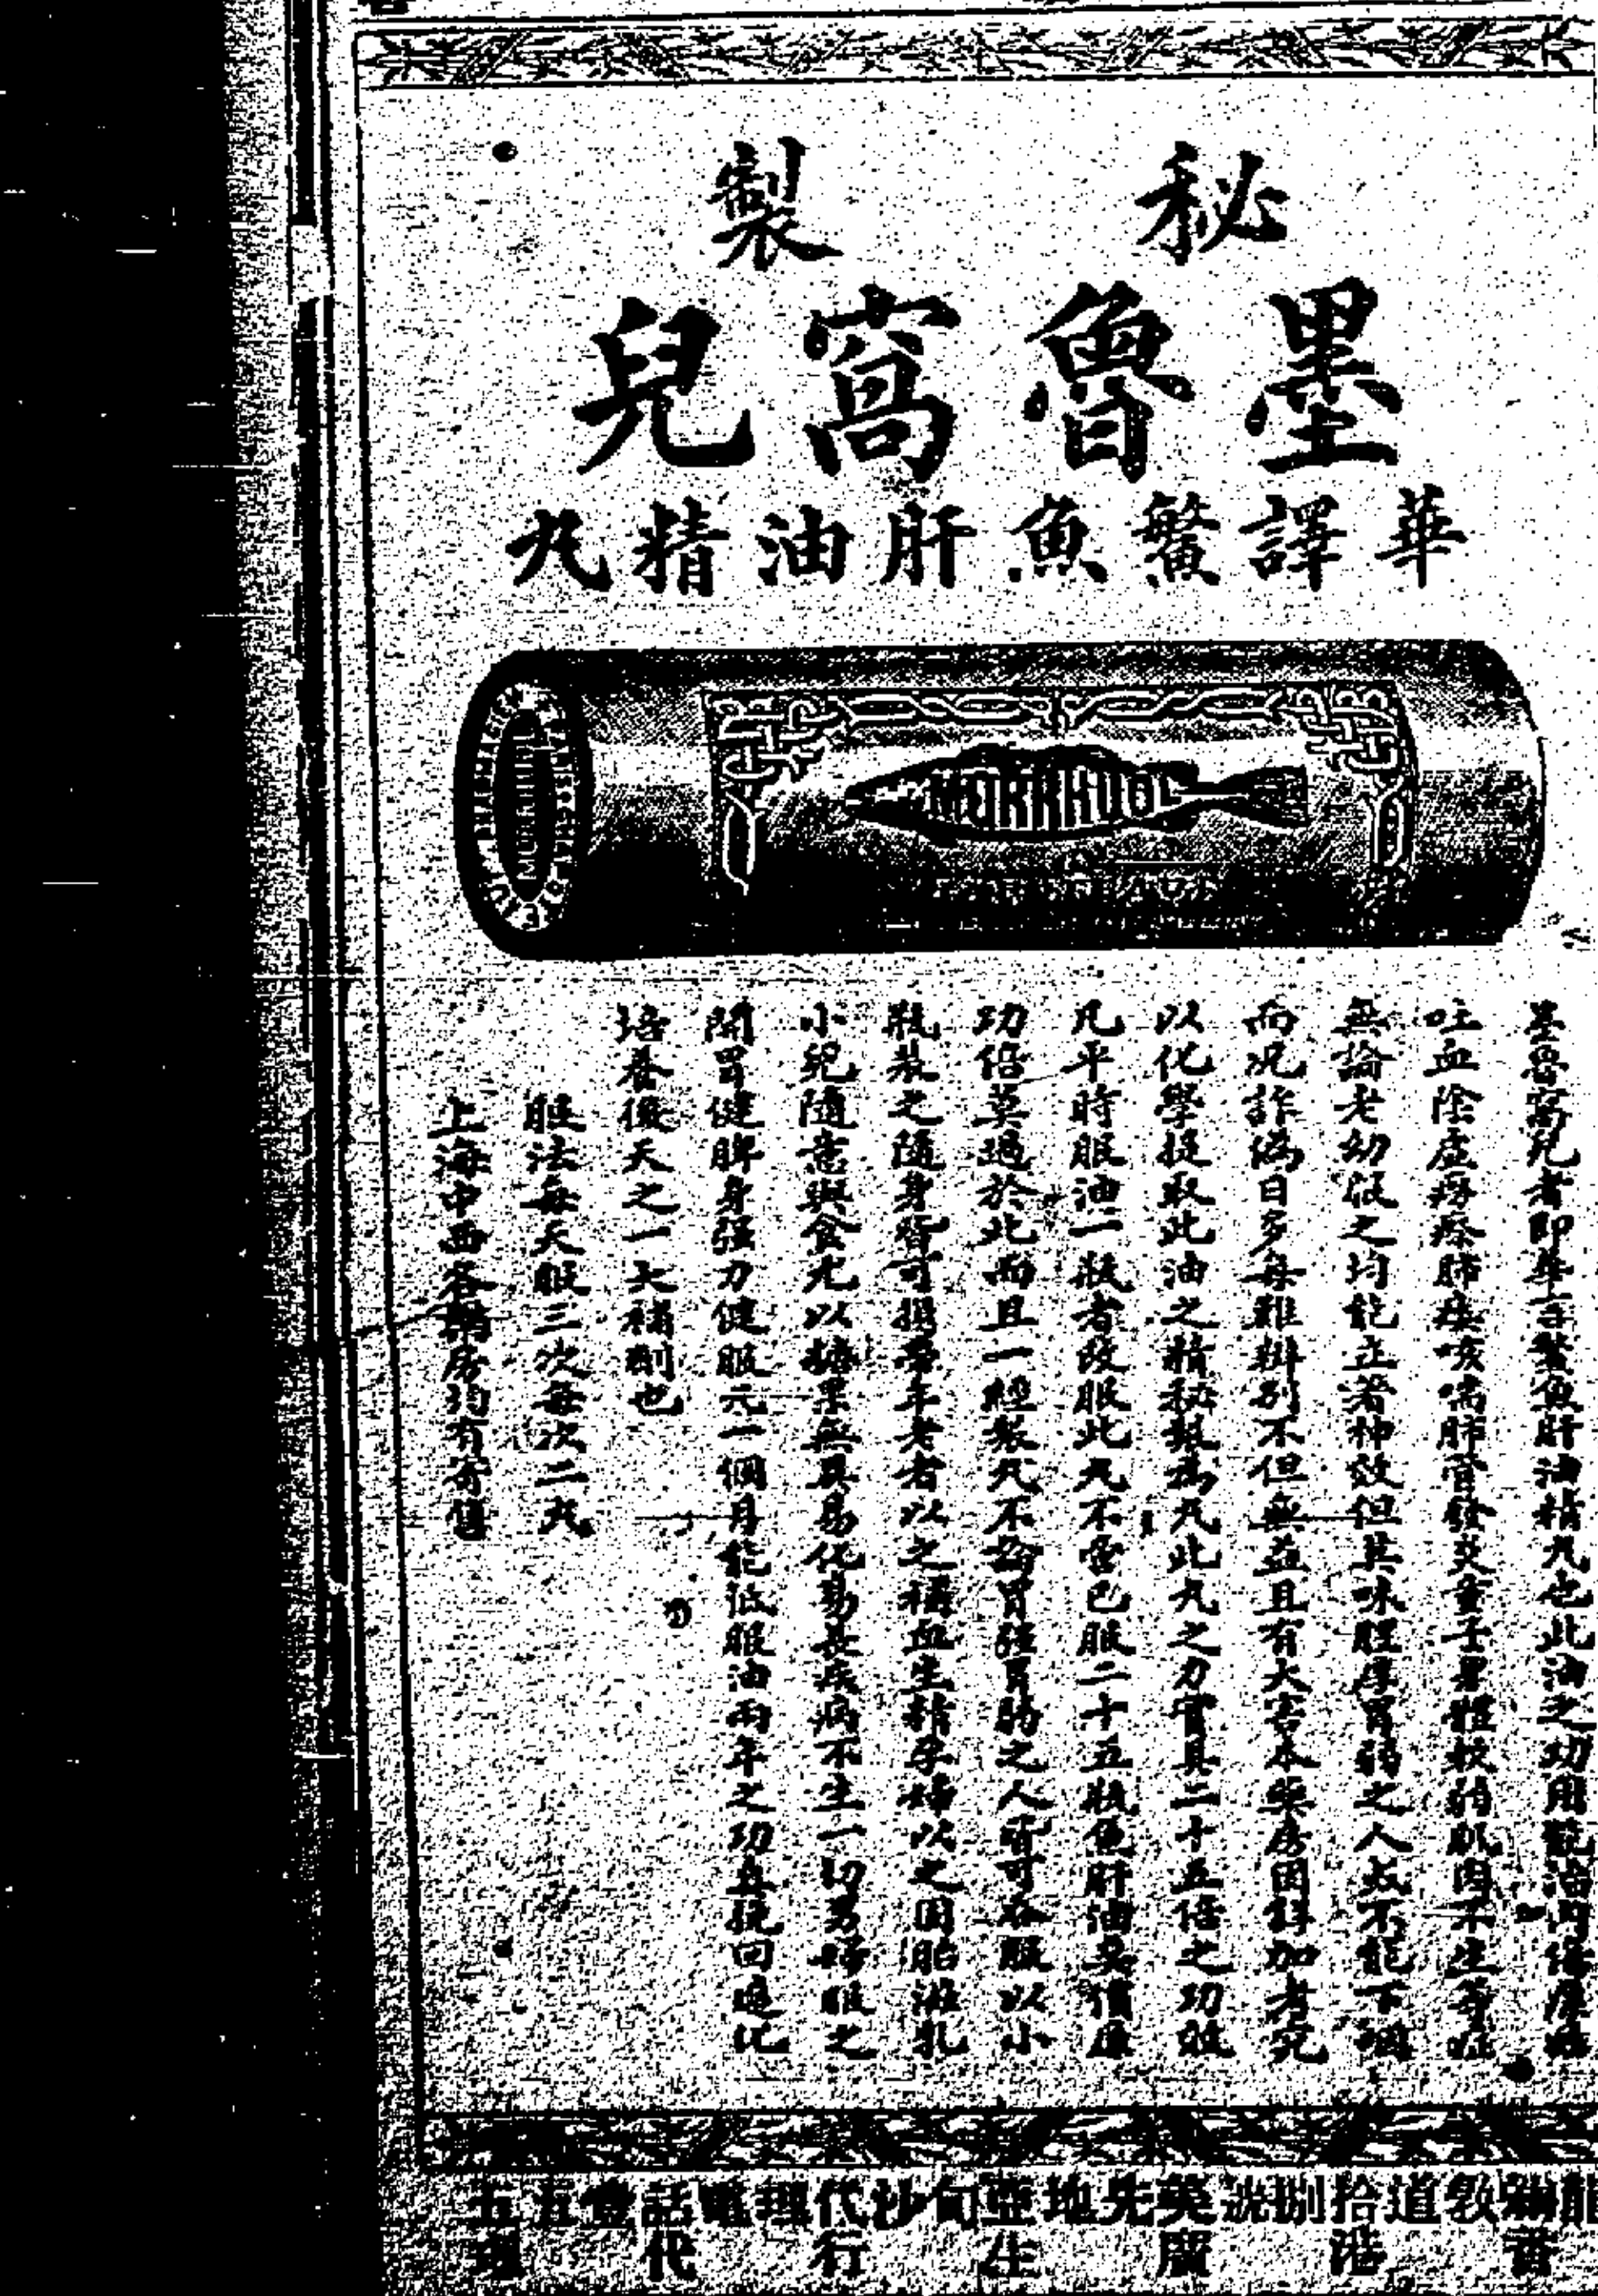 秘製
墨魯窩兒
華譯鰵魚肝油精丸
MORRHUOL
MORRHUOL
墨魯窩兒者即華言鰵魚肝油精丸也此油之功用能治內傷
吐血陰虛癆瘵肺痰咳喘肺管發炎童子身體軟弱肌肉不生等症
無論老幼服之均能立著神效但其味腥厚胃弱之人或不能下咽
而况詐偽日多每難辨别不但無益且有大害本藥房因詳加考究
以化學提取此油之精秘製為丸此丸之力實具二十五倍之功能
凡平時服油一瓶者改服此丸不啻已服二十五瓶魚肝油矣價廉
功倍莫過於此而且一經製丸不論胃强胃弱之人皆可吞服以小
瓶裝之隨身皆可 年老者以之補血生精孕婦以之固胎滋乳
小兒隨意與食尤以糖果無異易化易 疾病不生一切男婦服之
開胃健脾身强力健服完一個月能抵服油兩年之功
培養後天之一大補劑也
服法每天服三次每次二丸
上海中西各藥房均有寄售